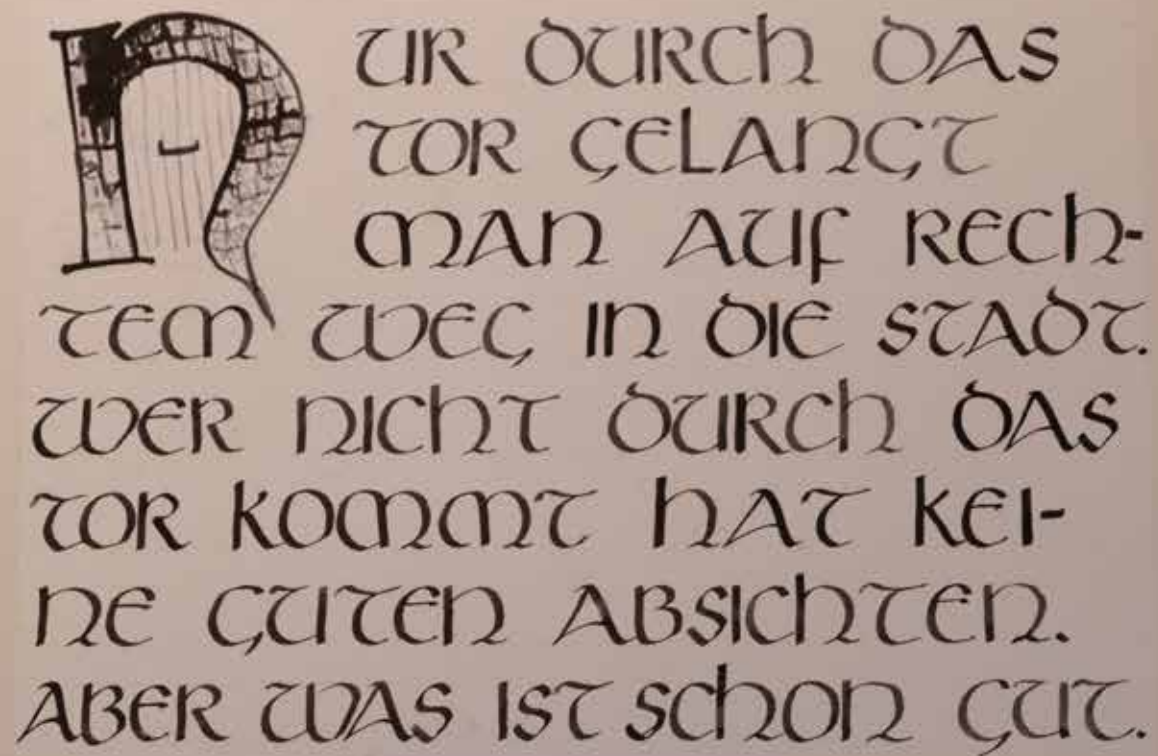 NUR DURCH DAS
TOR GELANGT
MAN AUF RECH-
TEM WEG IN DIE STADT.
WER NICHT DURCH DAS
TOR KOMMT HAT KEI-
NE GUTEN ABSICHTEN.
ABER WAS IST SCHON GUT.